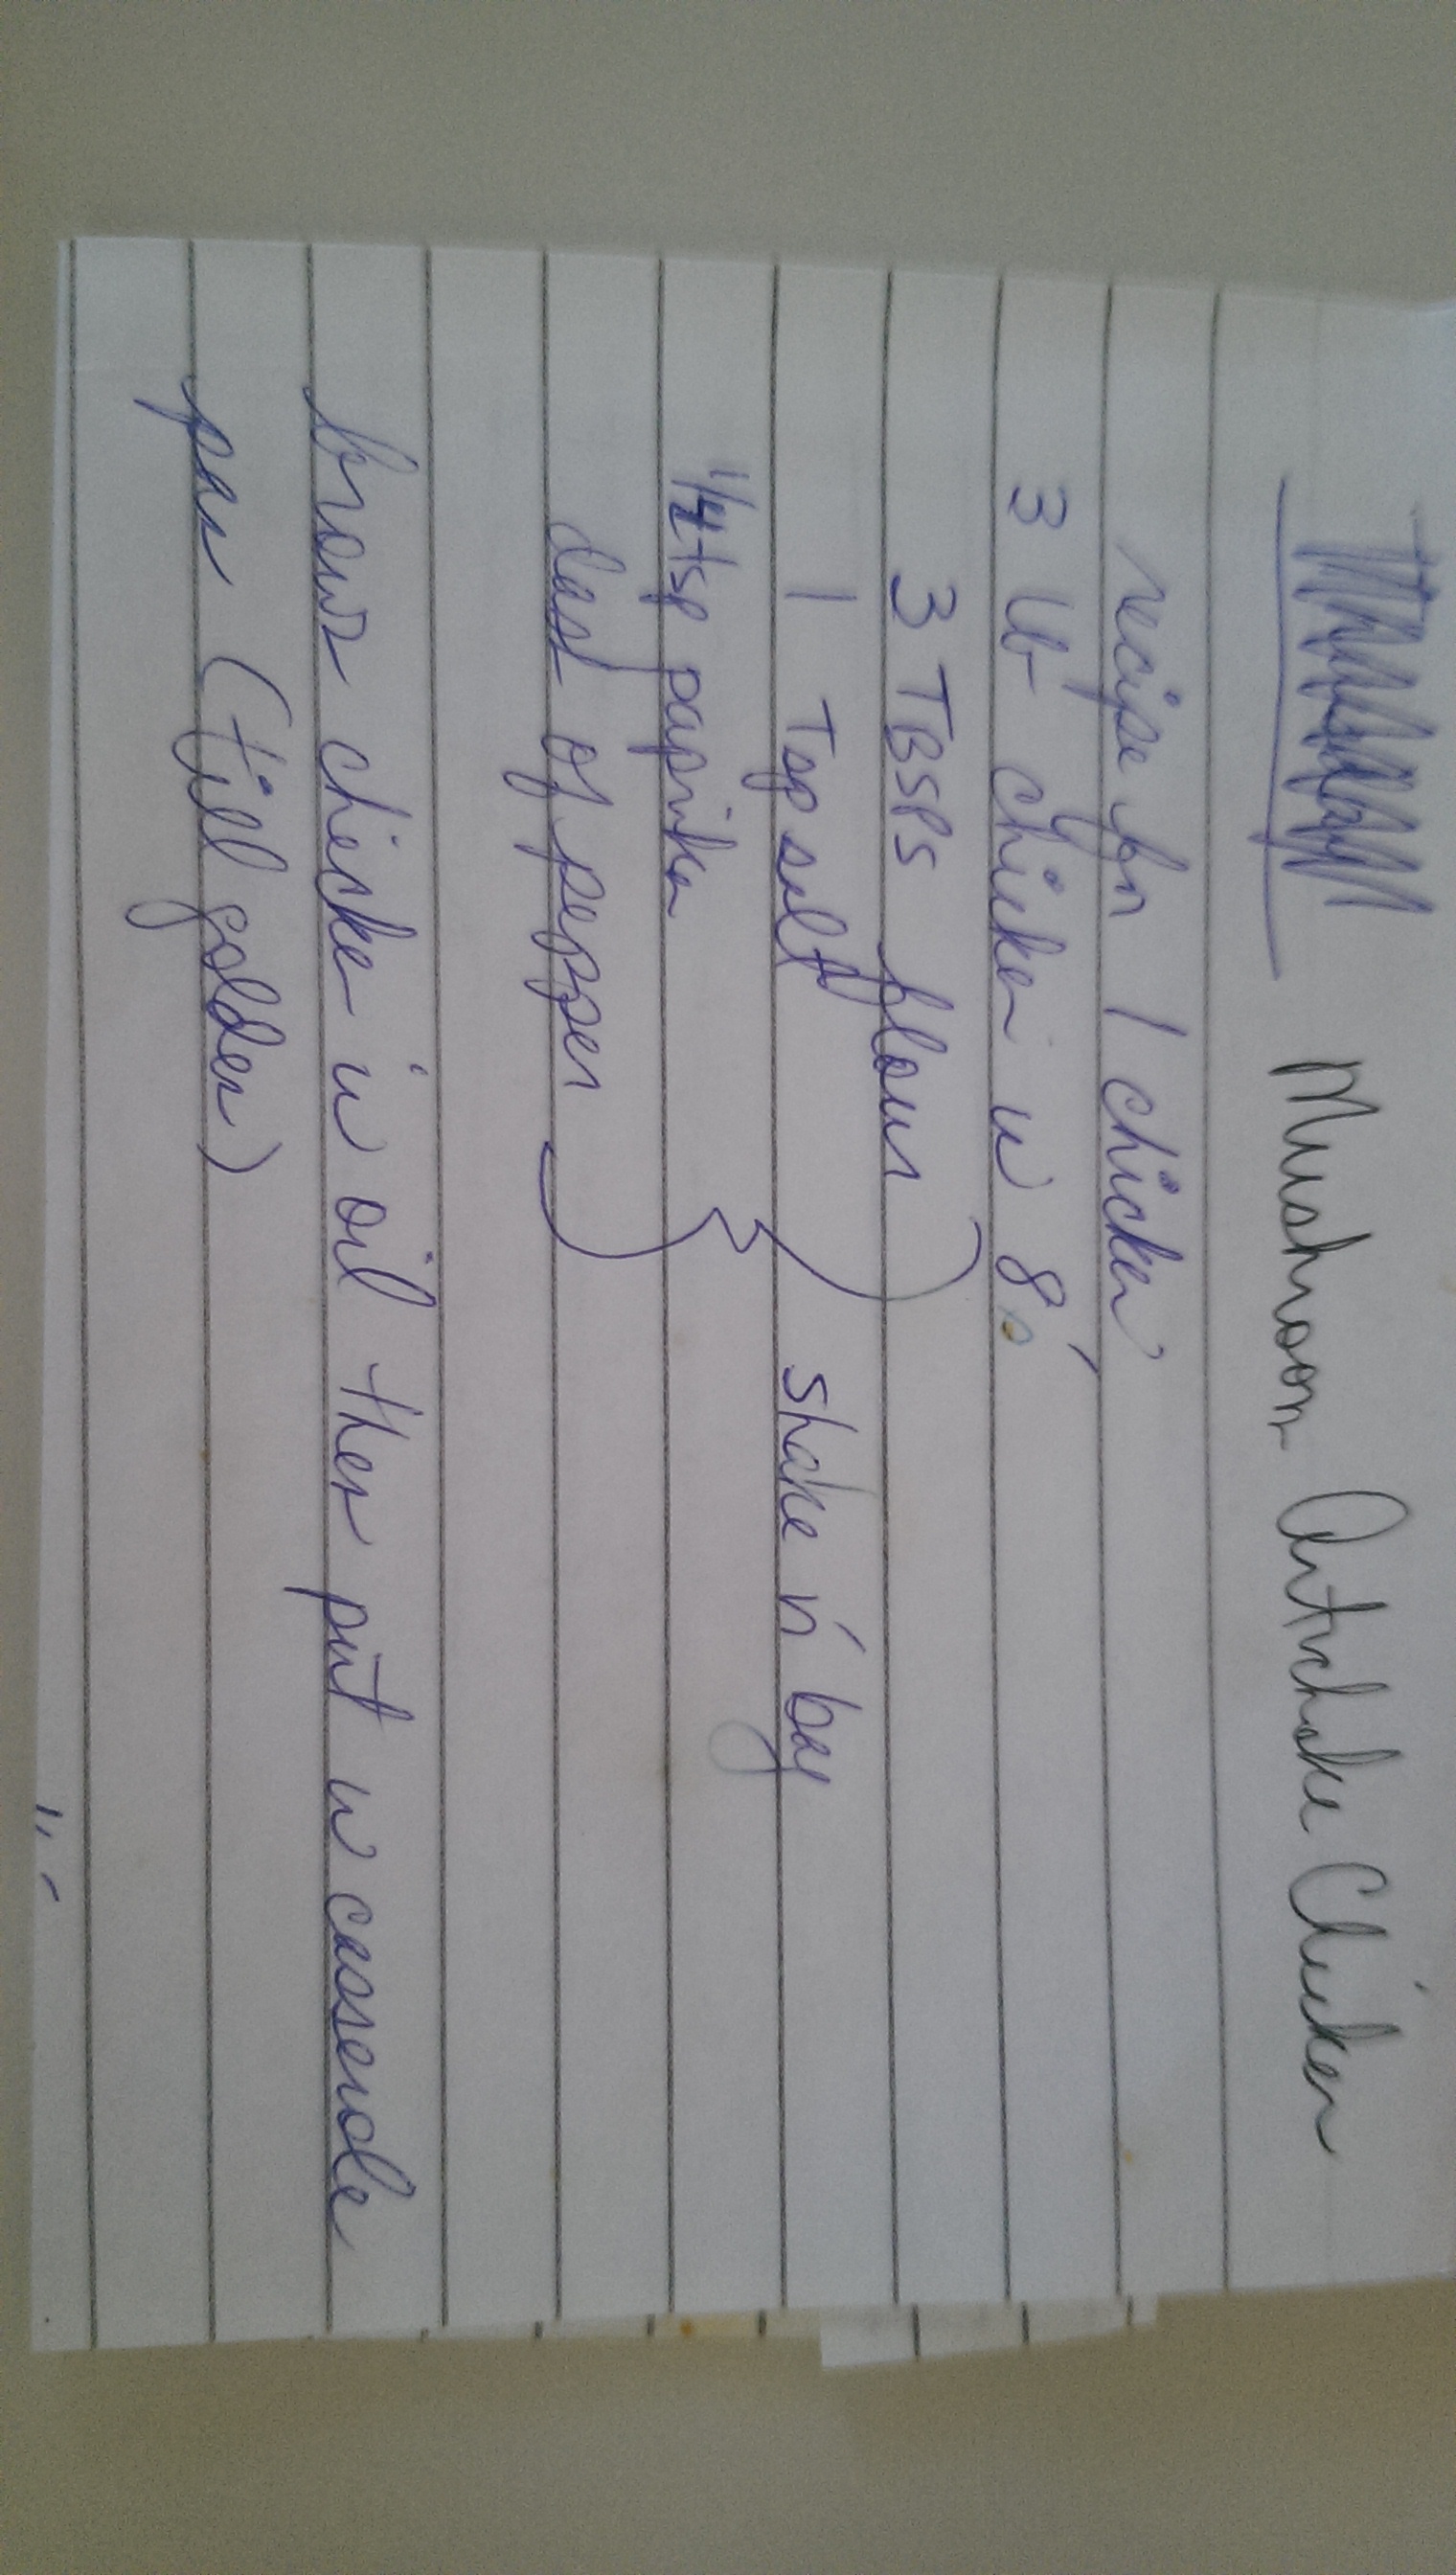 Mushroom Artichoke Chicken
recipe for 1 chicken
3 lb chicken in 8's
3 TBSPS flour
1 Tsp salt
shake n' bag
1/4 tsp paprika
dash of pepper
brown chicken in oil then put in casserole
pan (till golden)